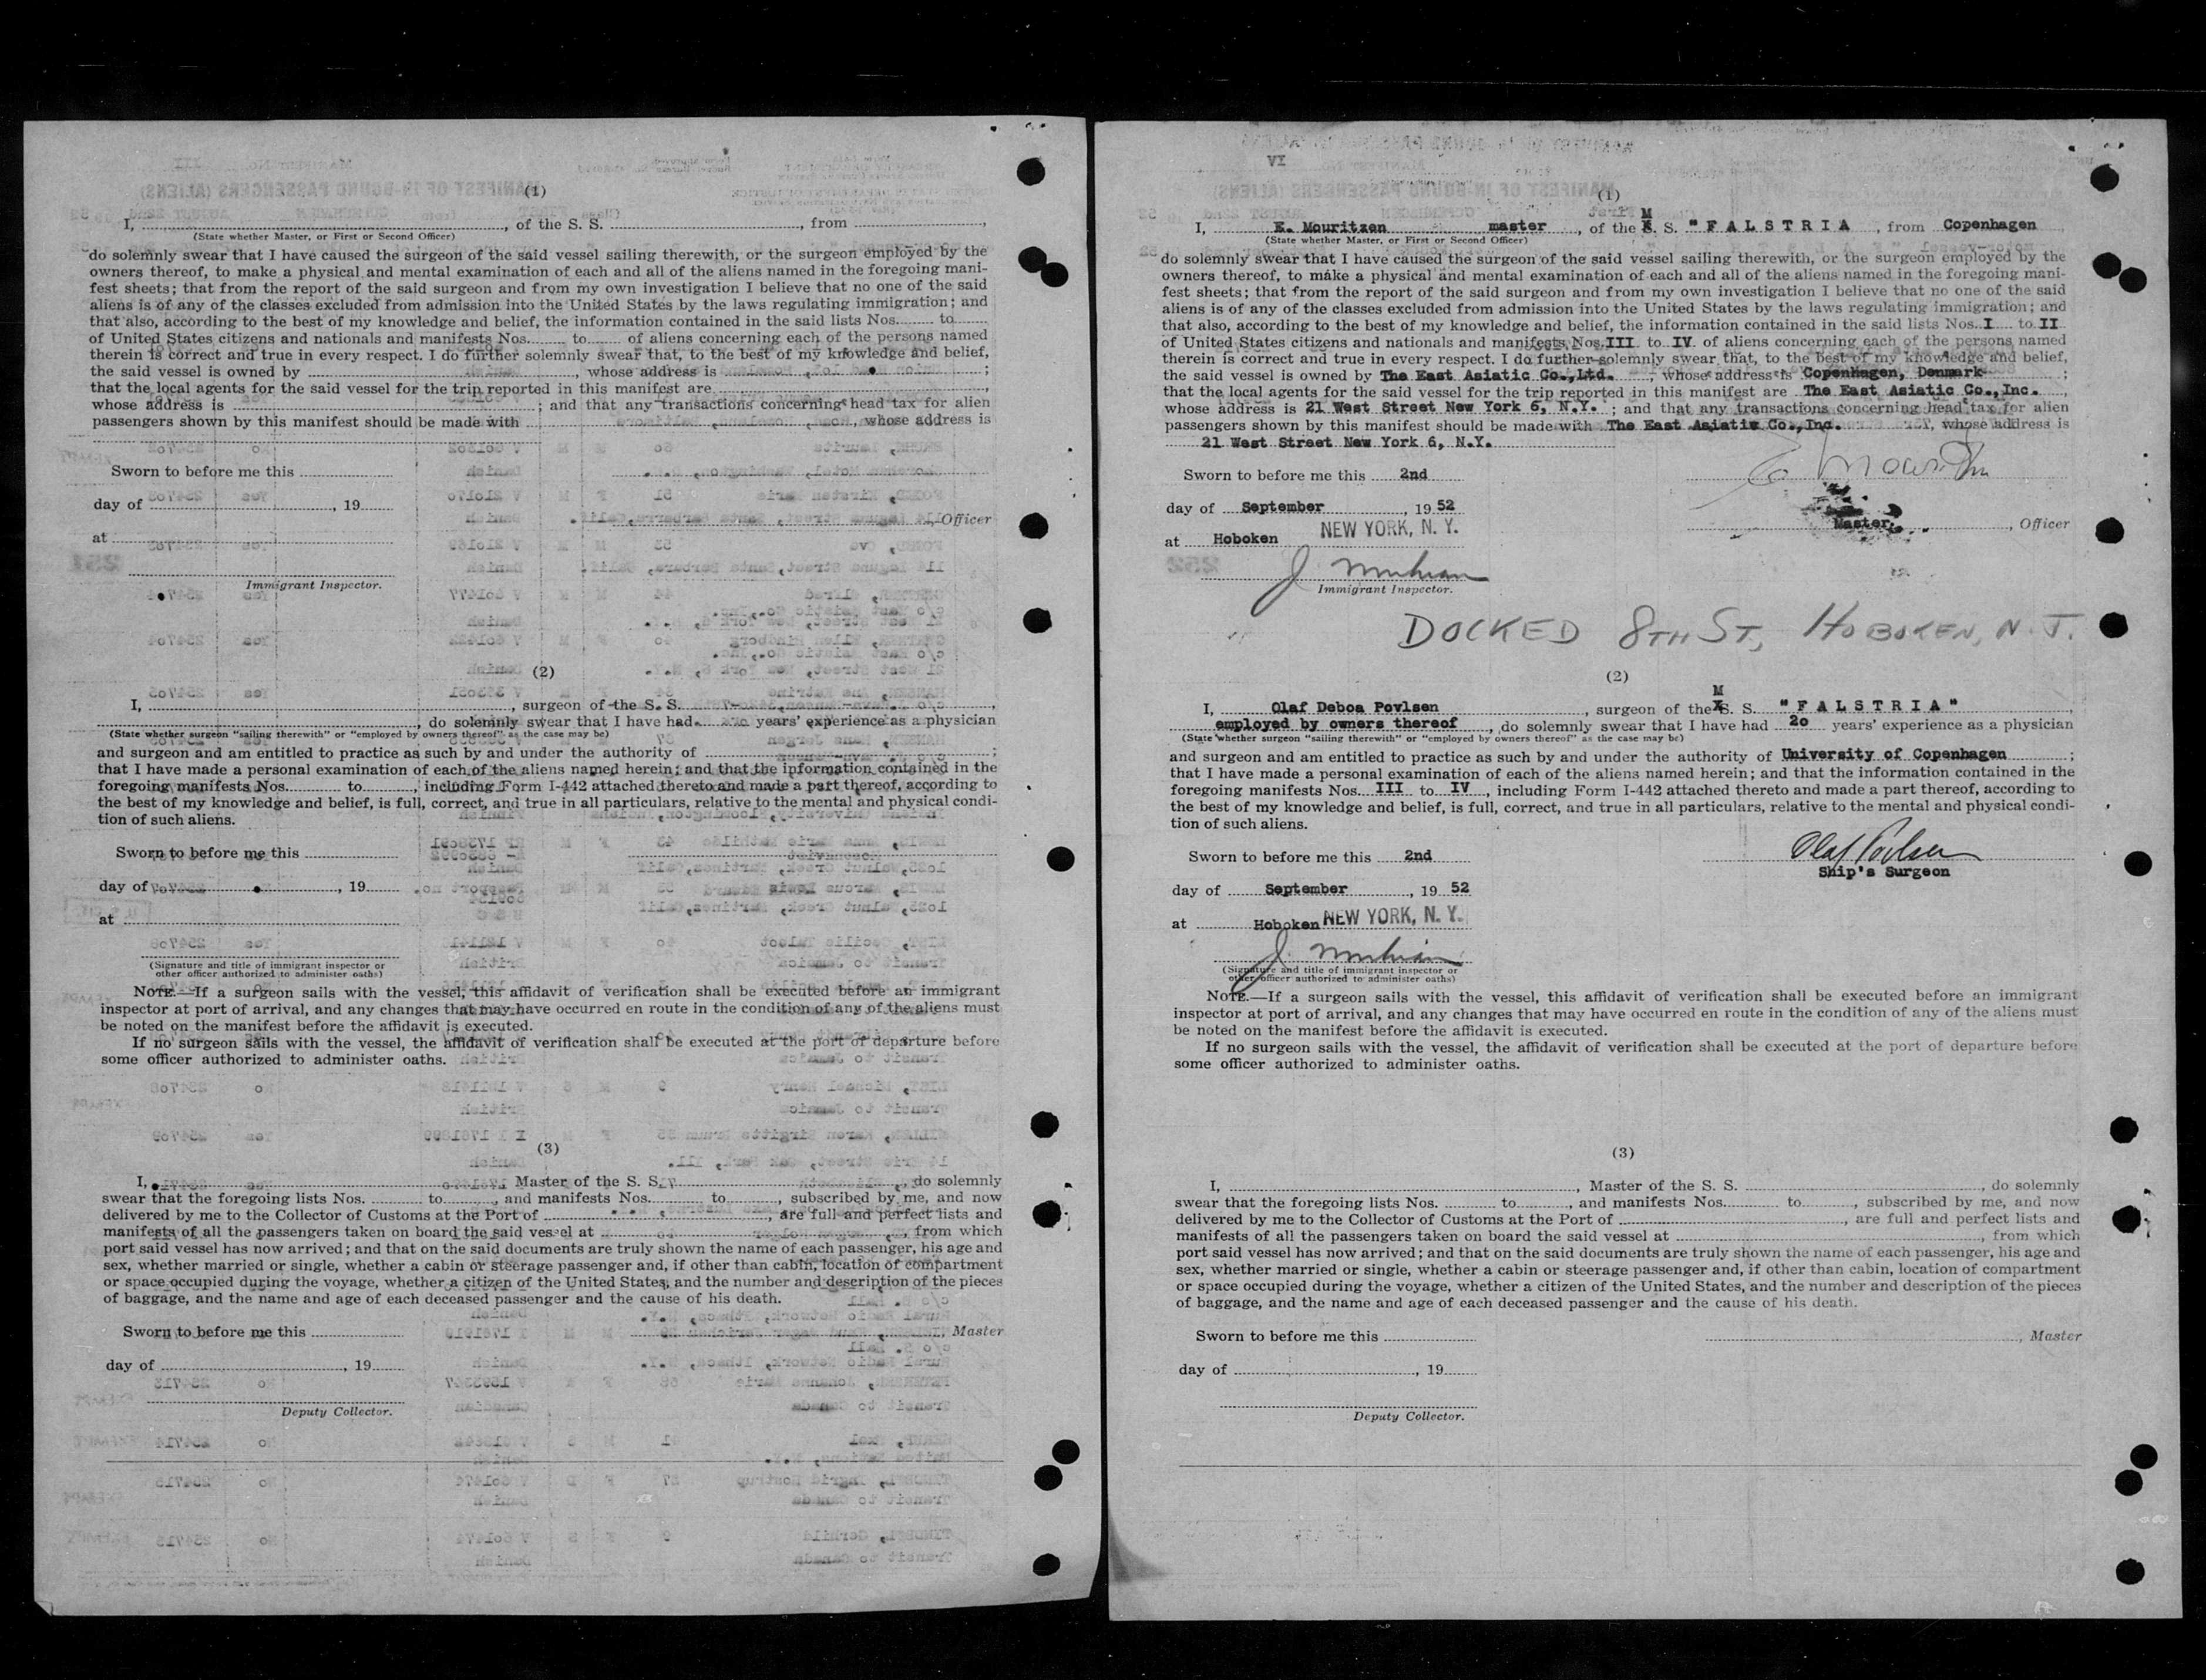 (1)
I, ..., of the S. S. ..., from ...,
(State whether Master, or First or Second Officer)
do solemnly swear that I have caused the surgeon of the said vessel sailing therewith, or the surgeon employed by the
owners thereof, to make a physical and mental examination of each and all of the aliens named in the foregoing mani-
fest sheets; that from the report of the said surgeon and from my own investigation I believe that no one of the said
aliens is of any of the classes excluded from admission into the United States by the laws regulating immigration; and
that also, according to the best of my knowledge and belief, the information contained in the said lists Nos. ... to ...
of United States citizens and nationals and manifests Nos. ... to ... of aliens concerning each of the persons named
therein is correct and true in every respect. I do further solemnly swear that, to the best of my knowledge and belief,
the said vessel is owned by ..., whose address is ...;
that the local agents for the said vessel for the trip reported in this manifest are ...,
whose address is ...; and that any transactions concerning head tax for alien
passengers shown by this manifest should be made with ... whose address is
Sworn to before me this ...
day of ..., 19...
..., Officer
at ...
Immigrant Inspector.
(2)
I, ..., surgeon of the S. S. ...,
..., do solemnly swear that I have had ... years' experience as a physician
(State whether surgeon "sailing therewith" or "employed by owners thereof" as the case may be)
and surgeon and am entitled to practice as such by and under the authority of ...;
that I have made a personal examination of each of the aliens named herein; and that the information contained in the
foregoing manifests Nos. ... to ..., including Form I-442 attached thereto and made a part thereof, according to
the best of my knowledge and belief, is full, correct, and true in all particulars, relative to the mental and physical condi-
tion of such aliens.
Sworn to before me this ...
day of ..., 19...
at ...
(Signature and title of immigrant inspector or
other officer authorized to administer oaths)
NOTE.—If a surgeon sails with the vessel, this affidavit of verification shall be executed before an immigrant
inspector at port of arrival, and any changes that may have occurred en route in the condition of any of the aliens must
be noted on the manifest before the affidavit is executed.
If no surgeon sails with the vessel, the affidavit of verification shall be executed at the port of departure before
some officer authorized to administer oaths.
(3)
I, ... Master of the S. S. ..., do solemnly
swear that the foregoing lists Nos. ... to ..., and manifests Nos. ... to ..., subscribed by me, and now
delivered by me to the Collector of Customs at the Port of ..., are full and perfect lists and
manifests of all the passengers taken on board the said vessel at ..., from which
port said vessel has now arrived; and that on the said documents are truly shown the name of each passenger, his age and
sex, whether married or single, whether a cabin or steerage passenger and, if other than cabin, location of compartment
or space occupied during the voyage, whether a citizen of the United States, and the number and description of the pieces
of baggage, and the name and age of each deceased passenger and the cause of his death.
Sworn to before me this ...
..., Master
day of ..., 19...
Deputy Collector.
IV
(1)
I, E. Mouritzen master, of the M S. S. "FALSTRIA, from Copenhagen
(State whether Master, or First or Second Officer)
do solemnly swear that I have caused the surgeon of the said vessel sailing therewith, or the surgeon employed by the
owners thereof, to make a physical and mental examination of each and all of the aliens named in the foregoing mani-
fest sheets; that from the report of the said surgeon and from my own investigation I believe that no one of the said
aliens is of any of the classes excluded from admission into the United States by the laws regulating immigration; and
that also, according to the best of my knowledge and belief, the information contained in the said lists Nos. I to II
of United States citizens and nationals and manifests Nos. III to IV of aliens concerning each of the persons named
therein is correct and true in every respect. I do further solemnly swear that, to the best of my knowledge and belief,
the said vessel is owned by The East Asiatic Co.,Ltd., whose address is Copenhagen, Denmark;
that the local agents for the said vessel for the trip reported in this manifest are The East Asiatic Co.,Inc.,
whose address is 21 West Street New York 6, N.Y.; and that any transactions concerning head tax for alien
passengers shown by this manifest should be made with The East Asiatic Co.,Inc., whose address is
21 West Street New York 6, N.Y.
Sworn to before me this 2nd
E Mouritzen
day of September, 19 52
Master, Officer
at Hoboken NEW YORK, N. Y.
Immigrant Inspector.
DOCKED 8TH ST, HOBOKEN, N. J.
(2)
I, Olaf Deboa Povlsen, surgeon of the M S. S. "FALSTRIA"
employed by owners thereof, do solemnly swear that I have had 20 years' experience as a physician
(State whether surgeon "sailing therewith" or "employed by owners thereof" as the case may be)
and surgeon and am entitled to practice as such by and under the authority of University of Copenhagen;
that I have made a personal examination of each of the aliens named herein; and that the information contained in the
foregoing manifests Nos. III to IV, including Form I-442 attached thereto and made a part thereof, according to
the best of my knowledge and belief, is full, correct, and true in all particulars, relative to the mental and physical condi-
tion of such aliens.
Sworn to before me this 2nd
Olaf Povlsen
Ship's Surgeon
day of September, 19 52
at Hoboken NEW YORK, N. Y.
(Signature and title of immigrant inspector or
other officer authorized to administer oaths)
NOTE.—If a surgeon sails with the vessel, this affidavit of verification shall be executed before an immigrant
inspector at port of arrival, and any changes that may have occurred en route in the condition of any of the aliens must
be noted on the manifest before the affidavit is executed.
If no surgeon sails with the vessel, the affidavit of verification shall be executed at the port of departure before
some officer authorized to administer oaths.
(3)
I, ..., Master of the S. S. ..., do solemnly
swear that the foregoing lists Nos. ... to ..., and manifests Nos. ... to ..., subscribed by me, and now
delivered by me to the Collector of Customs at the Port of ..., are full and perfect lists and
manifests of all the passengers taken on board the said vessel at ..., from which
port said vessel has now arrived; and that on the said documents are truly shown the name of each passenger, his age and
sex, whether married or single, whether a cabin or steerage passenger and, if other than cabin, location of compartment
or space occupied during the voyage, whether a citizen of the United States, and the number and description of the pieces
of baggage, and the name and age of each deceased passenger and the cause of his death.
Sworn to before me this ...
..., Master
day of ..., 19...
Deputy Collector.